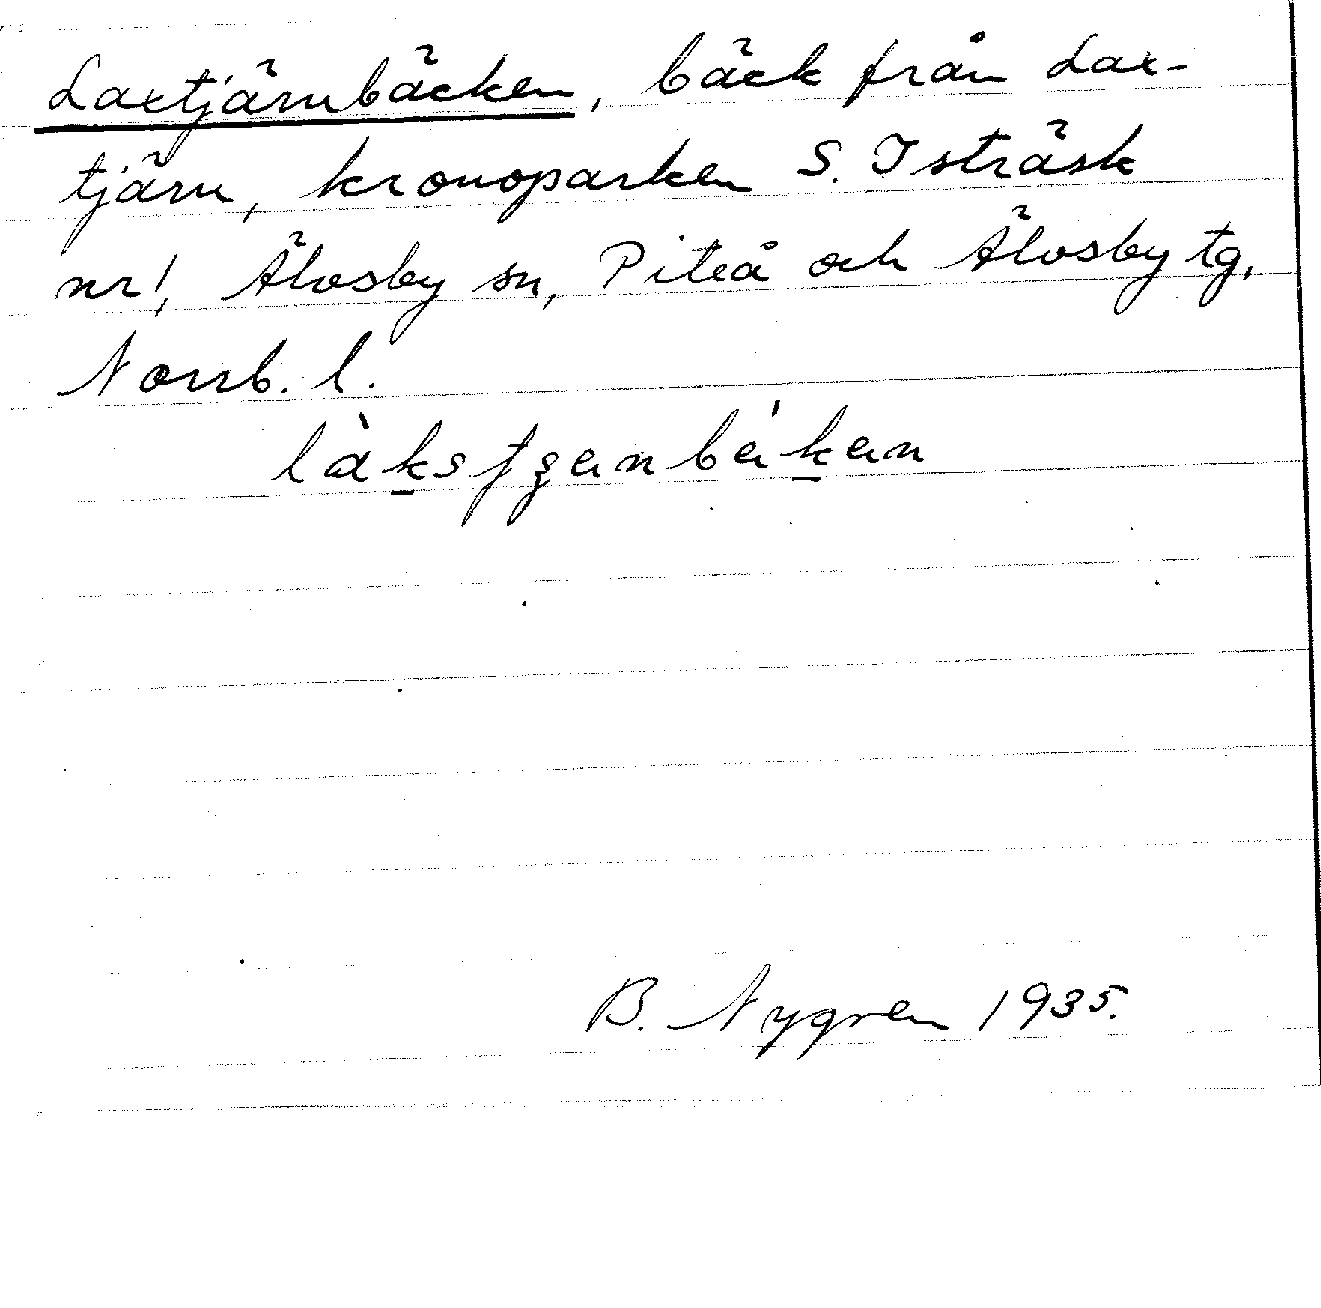 Laxtjärnbäcken, bäck från Lax-
tjärn, kronoparken S. Isträsk
nr1, Älvsby sn, Piteå och Älvsby tg,
Norrb. l.
B. Nygren 1935.